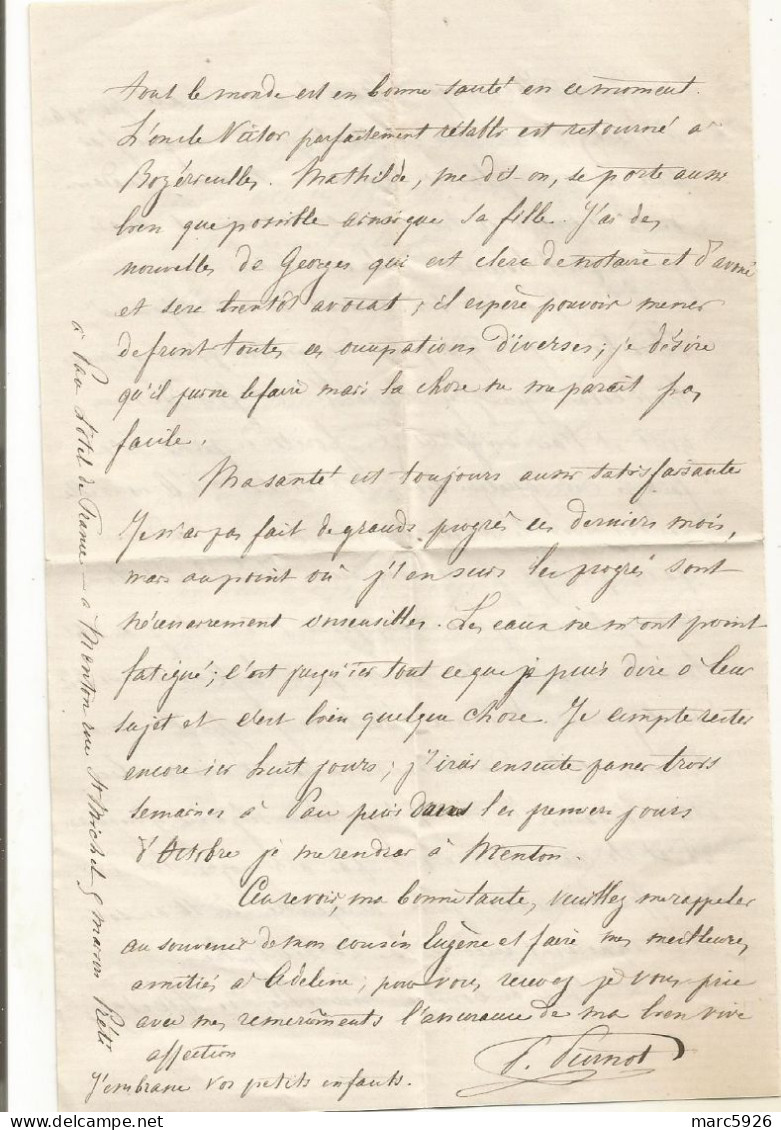 tout le monde est en bonne santé en ce moment.
L'oncle Victor parfaitement rétabli est retourné à
Rozérieulles. Mathilde, me dit-on, se porte aussi
bien que possible ainsi que sa fille. J'ai des
nouvelles de Georges qui est clerc de notaire et d'avoué
et sera bientôt avocat ; il espère pouvoir mener
de front toutes ces occupations diverses ; je désire
qu'il puisse le faire mais la chose ne me paraît pas
facile.
Ma santé est toujours aussi satisfaisante
Je n'ai pas fait de grands progrès ces derniers mois,
mais au point où j'en suis les progrès sont
nécessairement insensibles. Les eaux ne m'ont point
fatigué ; c'est jusqu'ici tout ce que je puis dire à leur
sujet et c'est bien quelque chose. Je compte rester
encore ici huit jours ; j'irai ensuite passer trois
semaines à Pau puis dans les premiers jours
d'Octobre je me rendrai à Menton.
Au revoir, ma bonne tante, veuillez me rappeler
au souvenir de mon cousin Eugène et faire mes meilleures
amitiés à Adeline ; pour vous, recevez je vous prie
avec mes remerciments l'assurance de ma bien vive
affection
J'embrasse vos petits enfants.
à Pau hôtel de France – à Menton rue St Michel 9 maison
marc5926